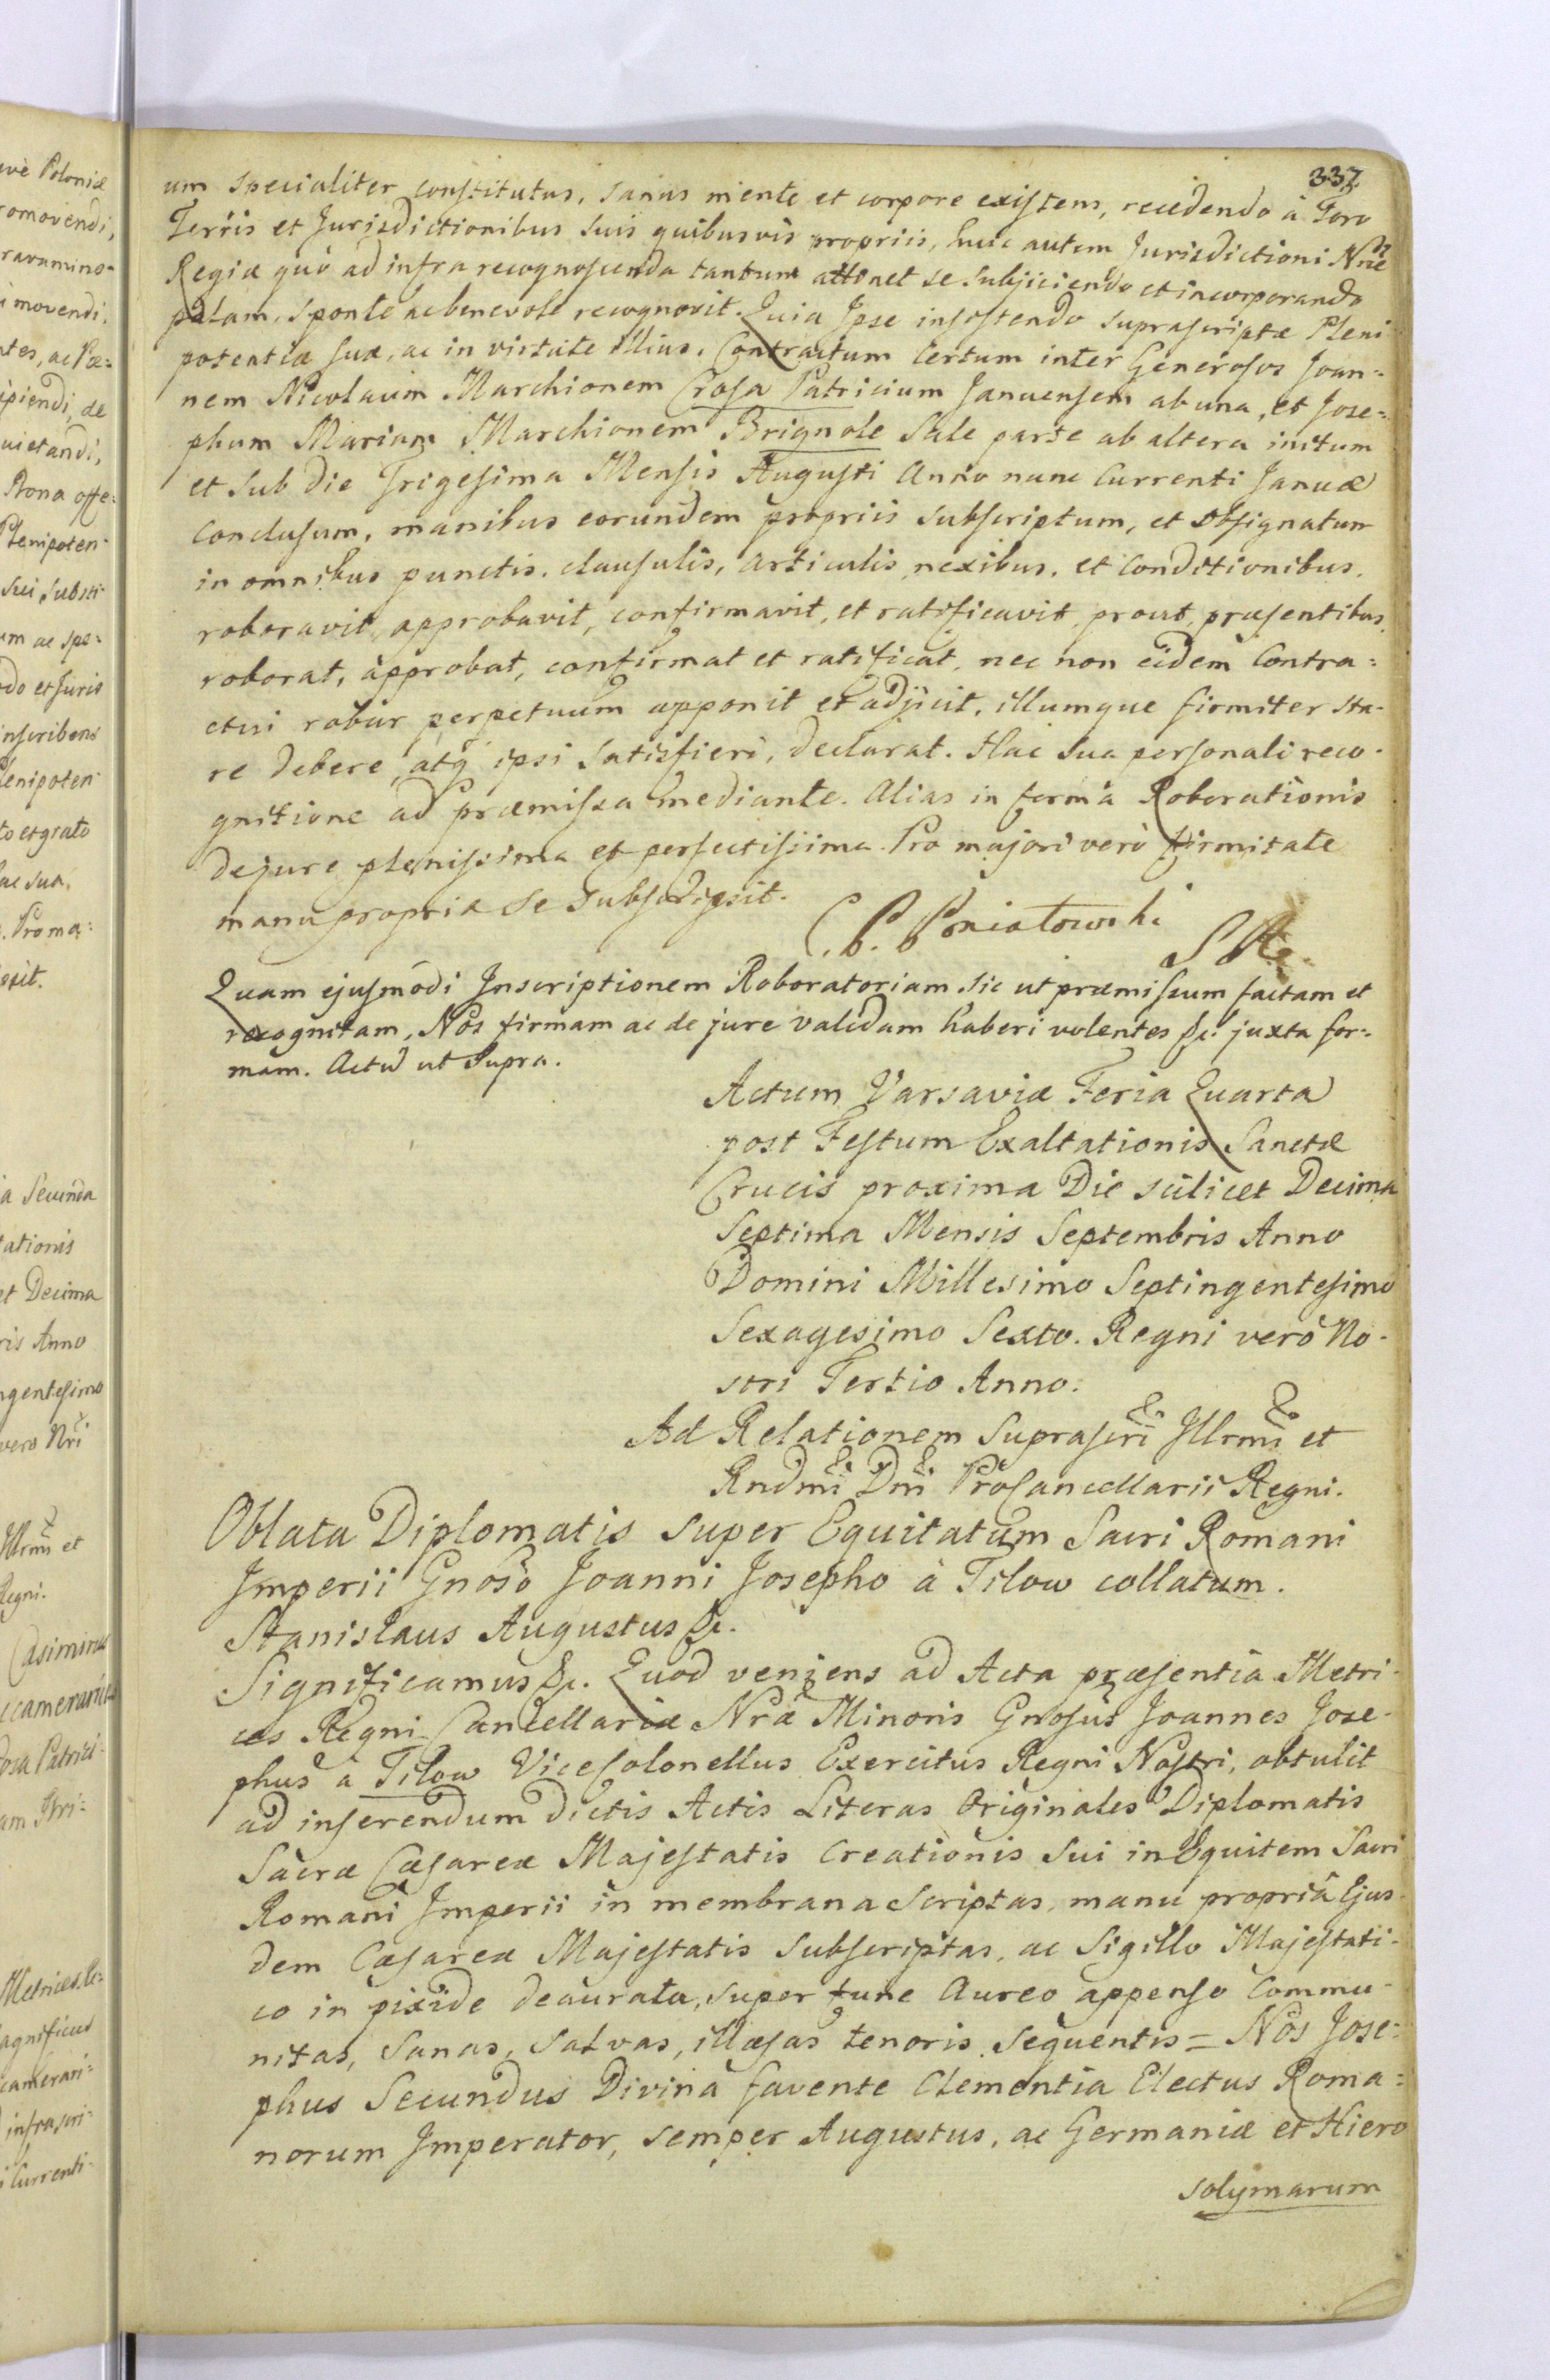 337
um specialiter constitutus, sanus mente et corpore existens, recedendo à Foro
Terris et Jurisdictionibus suis quibusvis propriis, huic autem Jurisdictioni Nrae
Regiæ quò ad infra recognoscenda tantum attinet se subjiciendo et incorporando
palam, sponte ac benevole recognovit. Quia Ipse insistendo suprascriptæ Pleni
potentiæ suæ, ac in virtute illius, Contractum certum inter Generosos Joan=
nem Nicolaum Marchionem Crosa Patricium Januensem ab una, et Jose=
phum Mariam Marchionem Brignole Sale parte ab altera initum
et sub die Trigesima Mensis Augusti Anno nunc Currenti Januæ
Conclusum, manibus eorundem propriis subscriptum, et obsignatum
in omnibus punctis, clausulis, articulis, nexibus, et Conditionibus,
roboravit, approbavit, confirmavit, et ratificavit, prout præsentibus
roborat, approbat, confirmat et ratificat, nec non eidem Contra=
ctui robur perpetuum apponit et adjicit, illumque firmiter sta-
re debere, atq ipsi satisfieri, declarat. Hac sua personali reco-
gnitione ad præmissa mediante. Alias in forma Roborationis
dejure plenissima et perfectissima. Pro majori verò firmitate
manu propria se subscripsit.
C. P. Poniatowski
Quam ejusmodi Inscriptionem Roboratoriam sic ut præmissum factam et
recognitam, Nos firmam ac de jure validam haberi volentes &c. juxta for=
mam. Actu ut supra.
Actum Varsaviæ Feria Quarta
post Festum Exaltationis Sanctæ
Crucis proxima Die scilicet Decima
Septima Mensis Septembris Anno
Domini Millesimo Septingentesimo
Sexagesimo Sexto. Regni verò No-
stri Tertio Anno.
Ad Relationem Suprascri Illrmi et
Rndmi Dni ProCancellarii Regni.
Oblata Diplomatis super Equitatum Sacri Romani
Imperii Gnoso Joanni Josepho à Tilow collatum.
Stanislaus Augustus &c.
Significamus &c. Quod veniens ad Acta præsentia Metri-
ces Regni Cancellariæ Nræ Minoris Gnosus Joannes Jose-
phus à Tilow ViceColonellus Exercitus Regni Nostri, obtulit
ad inserendum dictis Actis Literas Originales Diplomatis
Sacræ Cæsareæ Majestatis Creationis sui in Equitem Sacri
Romani Imperii in membrana scriptas, manu propria Ejus-
dem Cæsareæ Majestatis subscriptas, ac Sigillo Majestati-
co in pixide deaurata, super fune Aureo appenso Commu-
nitas, sanas, salvas, illæsas tenoris sequentis = Nos Jose=
phus Secundus Divinâ favente Clementia Electus Roma=
norum Imperator, semper Augustus, ac Germaniæ et Hiero
solymarum